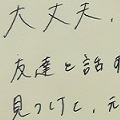 大丈夫、
友達と話
見つけて、元